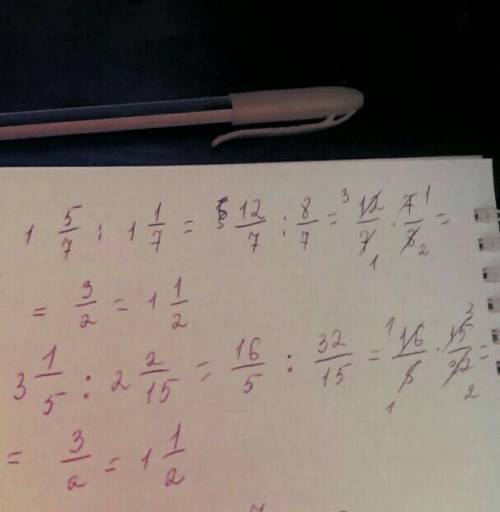 1 5/7 : 1 1/7 = 12/7 : 8/7 = 12/7 · 7/8 =
= 3/2 = 1 1/2
3 1/5 : 2 2/15 = 16/5 : 32/15 = 16/5 · 15/32 =
= 3/2 = 1 1/2